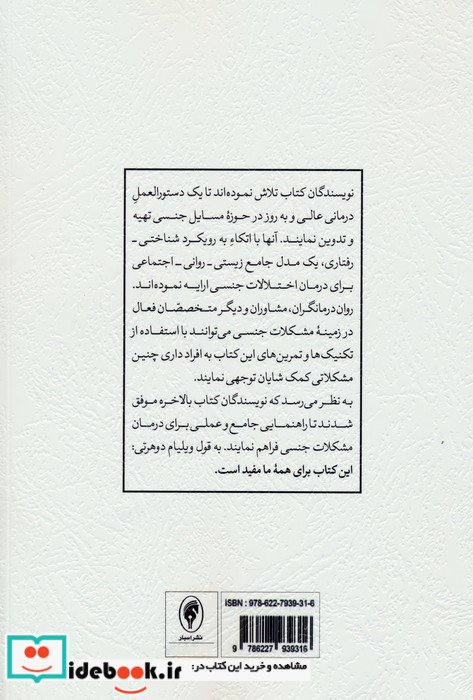 نویسندگان کتاب تلاش نموده‌اند تا یک دستورالعملِ
درمانی عالی و به روز در حوزهٔ مسایل جنسی تهیه
و تدوین نمایند. آنها با اتکاءِ به رویکرد شناختی ـ
رفتاری، یک مدل جامع زیستی ـ روانی ـ اجتماعی
برای درمان اختلالات جنسی ارایه نموده‌اند.
روان‌درمانگران، مشاوران و دیگر متخصصّان فعال
در زمینهٔ مشکلات جنسی می‌توانند با استفاده از
تکنیک‌ها و تمرین‌های این کتاب به افراد داری چنین
مشکلاتی کمک شایان توجهی نمایند.
به نظر می‌رسد که نویسندگان کتاب بالاخره موفق
شدند تا راهنمایی جامع و عملی برای درمان
مشکلات جنسی فراهم نمایند. به قول ویلیام دوهرتی:
این کتاب برای همهٔ ما مفید است.
نشر اسبار
ISBN : 978-622-7939-31-6
9 786227 939316
مشاهده و خرید این کتاب در:
idebook.ir